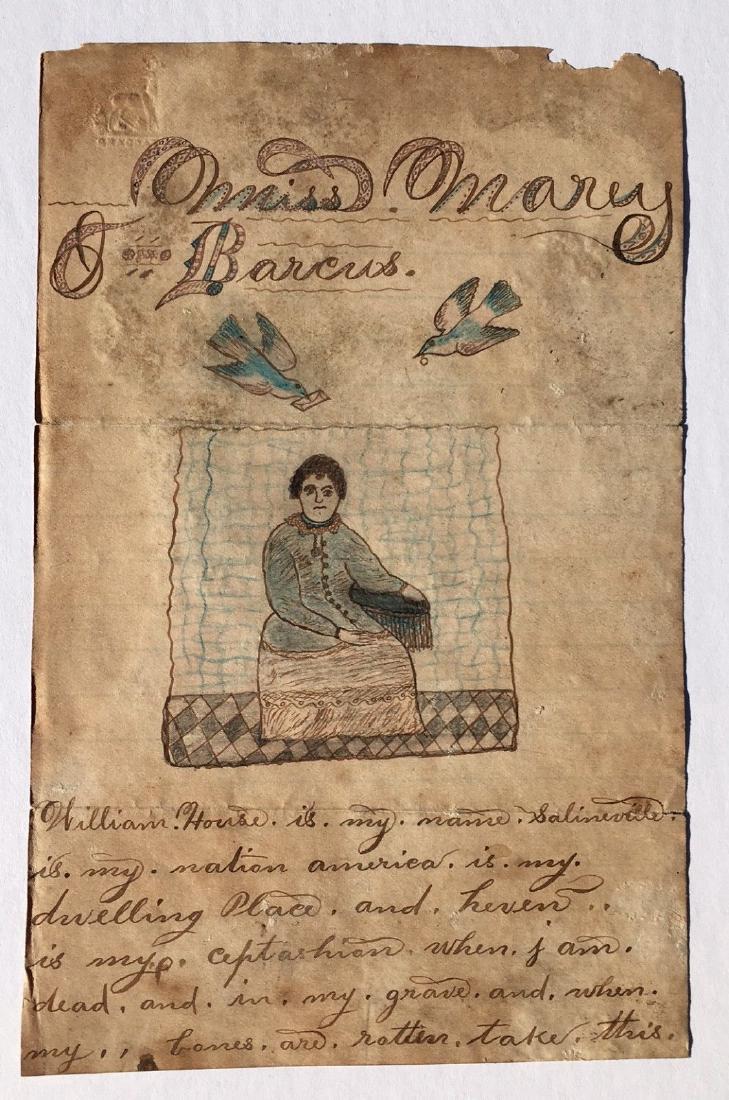 Miss. Marey
Barcus.
William. House. is. my. name. Salineville.
is. my. nation america. is. my.
dwelling Place. and. heven..
is my. ceptashion. when. j am.
dead. and. in. my. grave. and. when.
my.. bones. are. rotten. take. this.